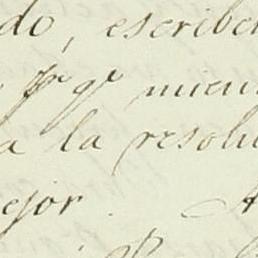 do, escriben
pr qe mien
a la resolu
ejor. A